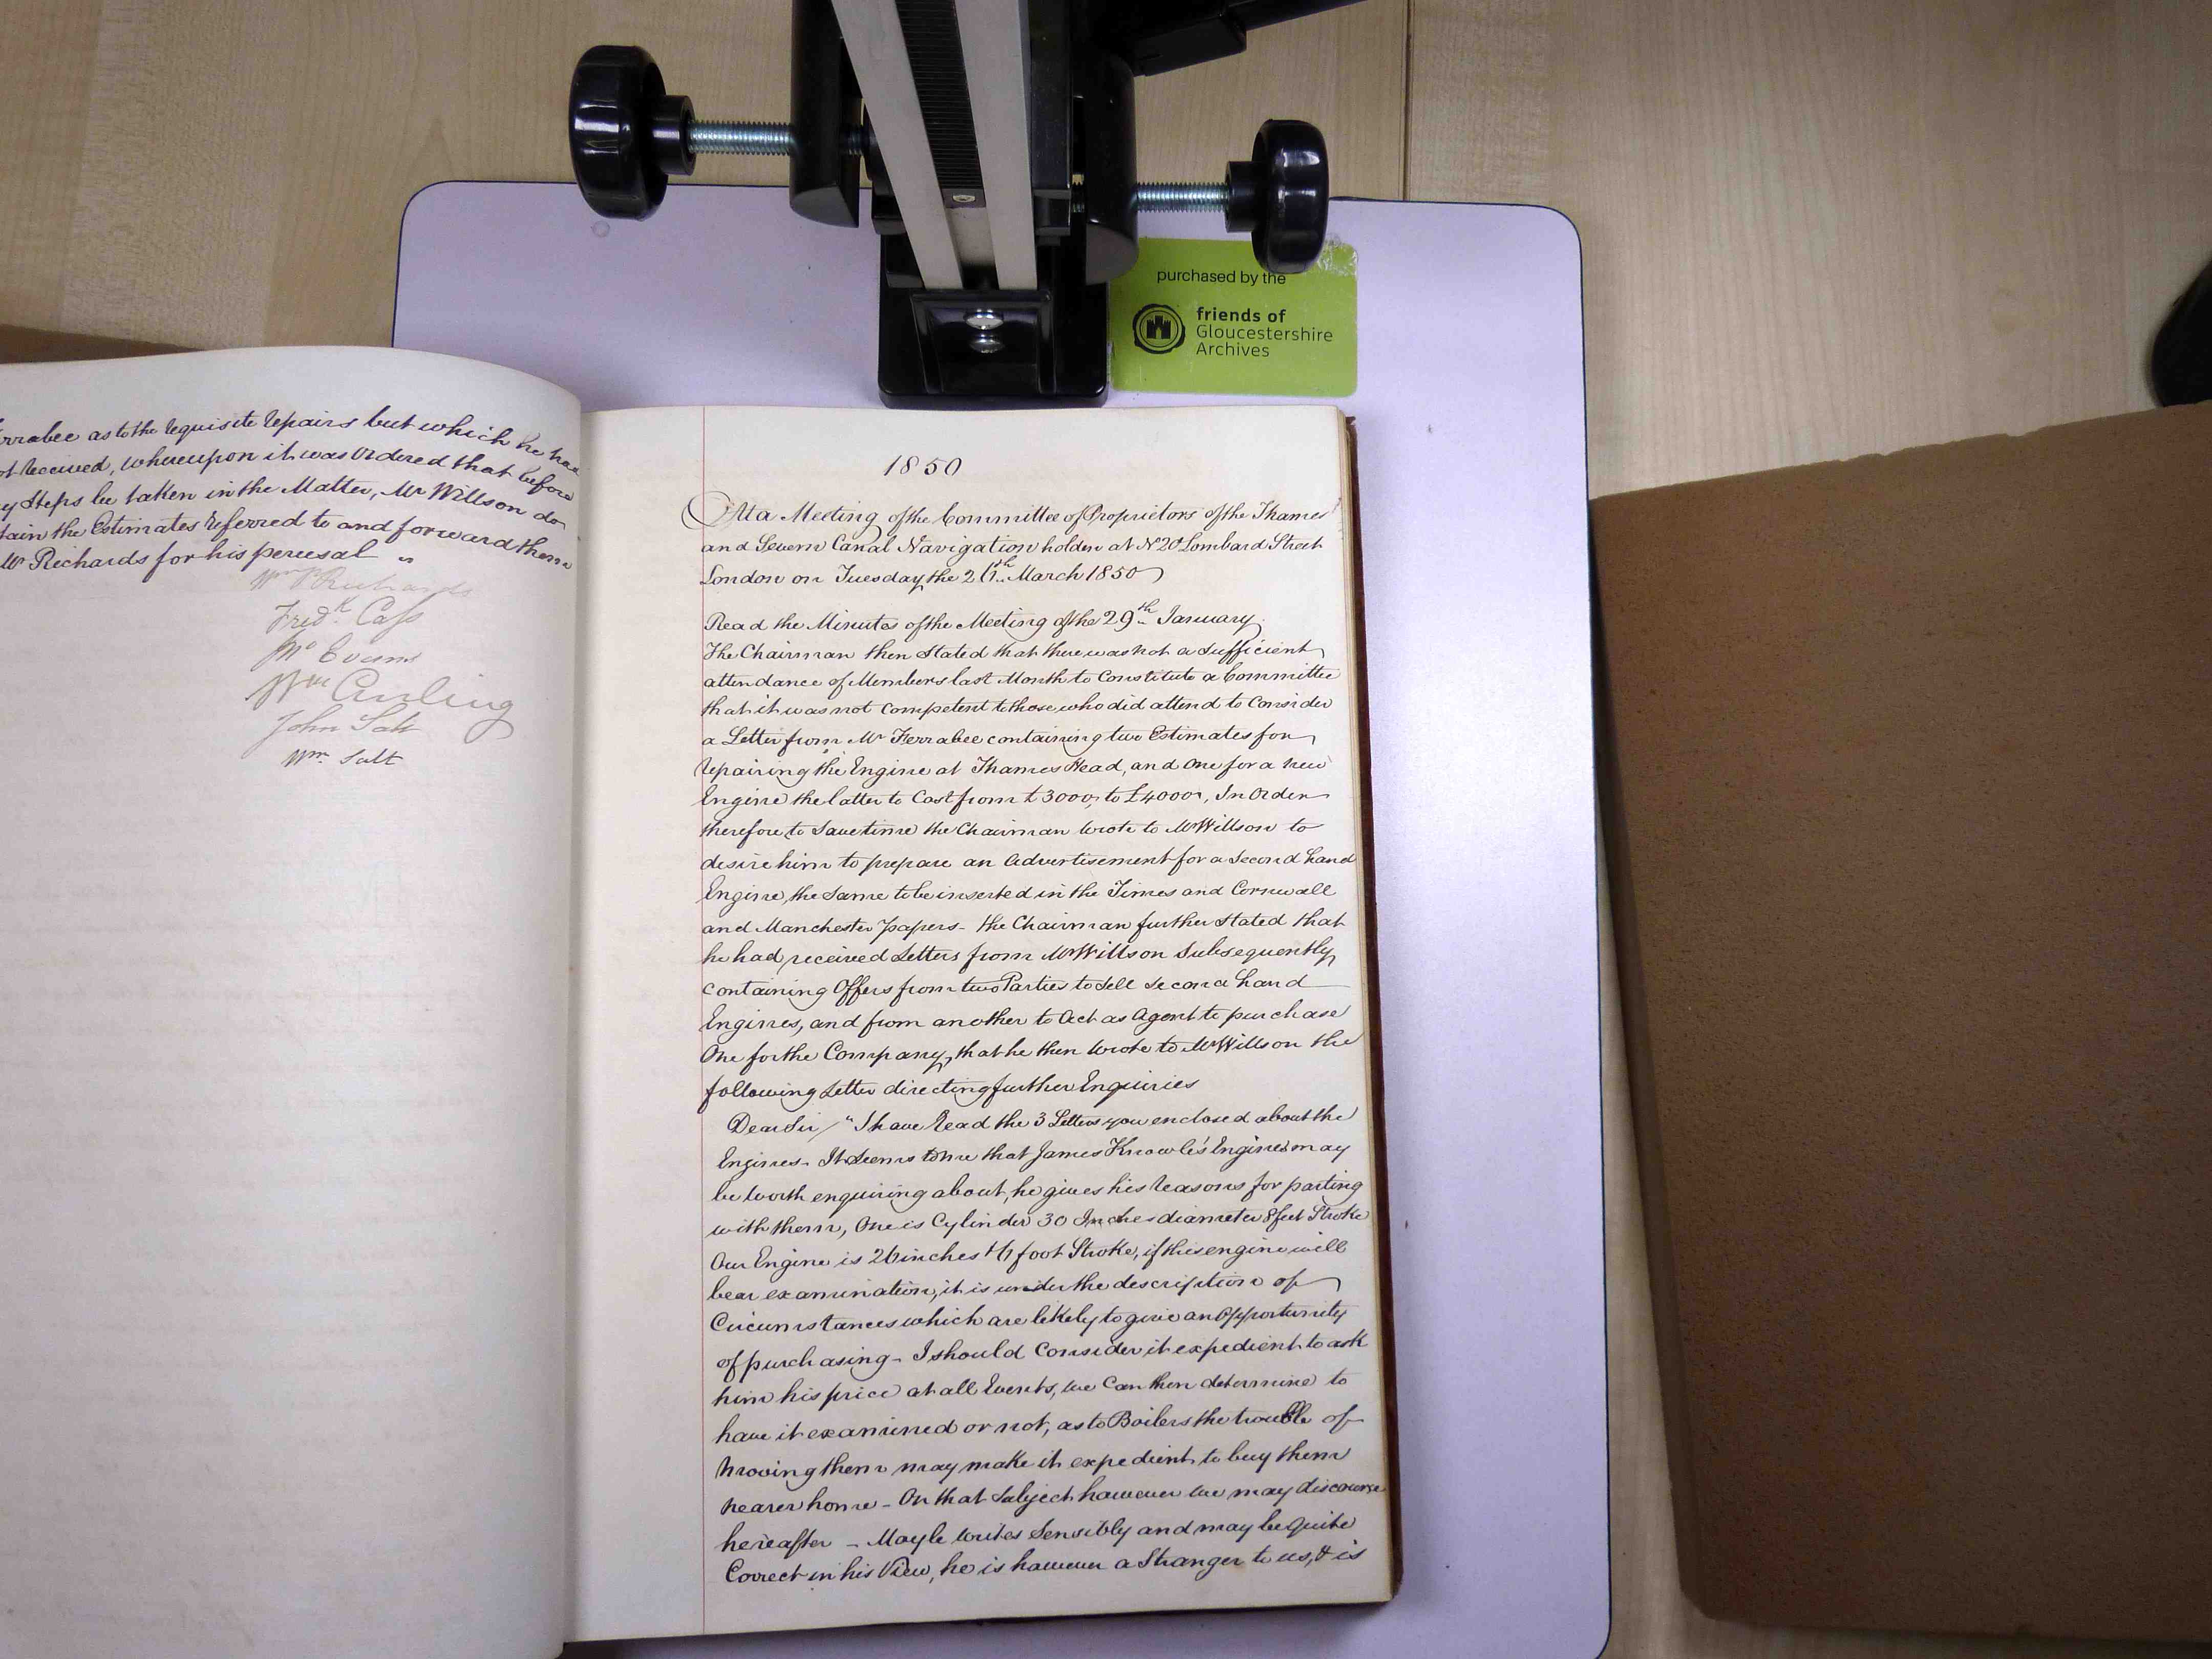 purchased by the
friends of
Gloucestershire
Archives
errabee as to the requisite repairs but which he has
ot received, whereupon it was Ordered that before
y Steps be taken in the Matter, Mr Willson do
tain the Estimates referred to and forward them
Mr Richards for his perusal "
Wm P Richards
Fredk. Cass
Wm Evans
Wm Curling
John Salt
Wm. Salt
1850
At a Meeting of the Committee of Proprietors of the Thames
and Severn Canal Navigation holden at No 20 Lombard Street
London on Tuesday the 26th. March 1850
Read the Minutes of the Meeting of the 29th January.
The Chairman then stated that there was not a sufficient
attendance of Members last Month to Constitute a Committee
that it was not competent to those who did attend to Consider
a Letter from Mr Ferrabee containing two Estimates for
repairing the Engine at Thames Head, and one for a new
Engine the latter to Cost from £3000, to £4000, In Order
therefore to save time the Chairman wrote to Mr Willson to
desire him to prepare an Advertisement for a second hand
Engine, the same to be inserted in the Times and Cornwall
and Manchester papers - the Chairman further stated that
he had received Letters from Mr Willson Subsequently
containing Offers from two Parties to sell second hand
Engines, and from another to Act as Agent to purchase
One for the Company, that he then wrote to Mr Willson the
following Letter directing further Enquiries
Dear Sir / "I have read the 3 Letters you enclosed about the
Engines - It seems to me that James Knowle's Engines may
be worth enquiring about, he gives his reasons for parting
with them, One is Cylinder 30 Inches diameter 8 feet Stroke
Our Engine is 26 inches & foot Stroke, if this engine will
bear examination, it is under the description of
Circumstances which are likely to give an Opportunity
of purchasing - I should Consider it expedient to ask
him his price at all Events, we Can then determine to
have it examined or not, as to Boilers the trouble of
moving them may make it expedient to buy them
nearer home - On that subject however we may discourse
hereafter - Mayle writes Sensibly and may be quite
Correct in his View, he is however a Stranger to us, & is